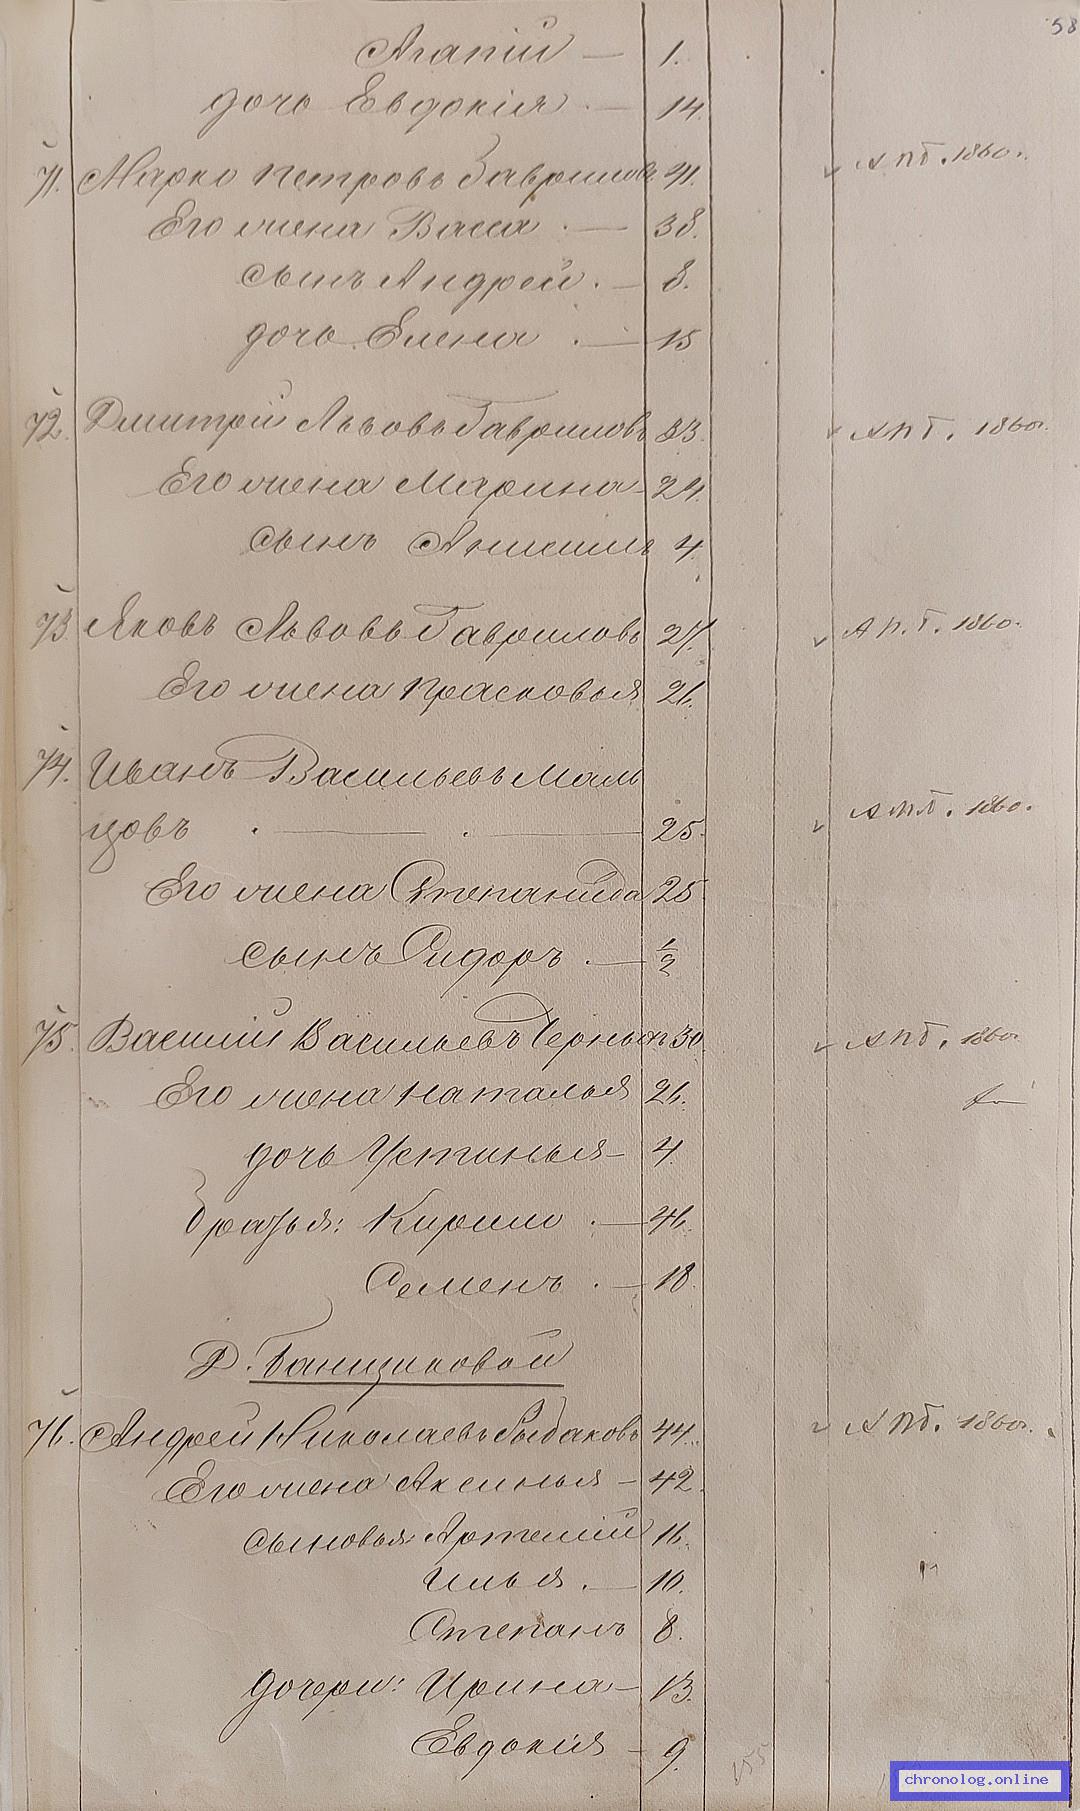 58
Агапій — 1.
дочь Евдокія — 14.
71. Марко Петровъ Гавриловъ 41. А П Г. 1860.
Его жена Васса — 38.
сынъ Андрей — 8.
дочь Елена — 15
72. Дмитрій Львовъ Гавриловъ 33. А П Г. 1860
Его жена Марина 24.
сынъ Анисимъ 4.
73. Яковъ Львовъ Гавриловъ 27. А П. Г. 1860.
Его жена Прасковья 26.
74. Иванъ Васильевъ Маль
цовъ — 25. 1860.
Его жена Степанида 25
сынъ Сидоръ — 1/2
75. Василій Васильевъ 30. 1860
Его жена Наталья 26.
дочь Устинья — 4.
братья: Кирило —
Семенъ — 18.
Д. Банщиковой
76. Андрей Николаевъ Рыбаковъ 44. 1860.
Его жена Аксинья — 42.
сыновья: Артемій 16.
Илья — 10.
Степанъ 8.
дочери: Ирина — 13.
Евдокія — 9.
chronolog.online